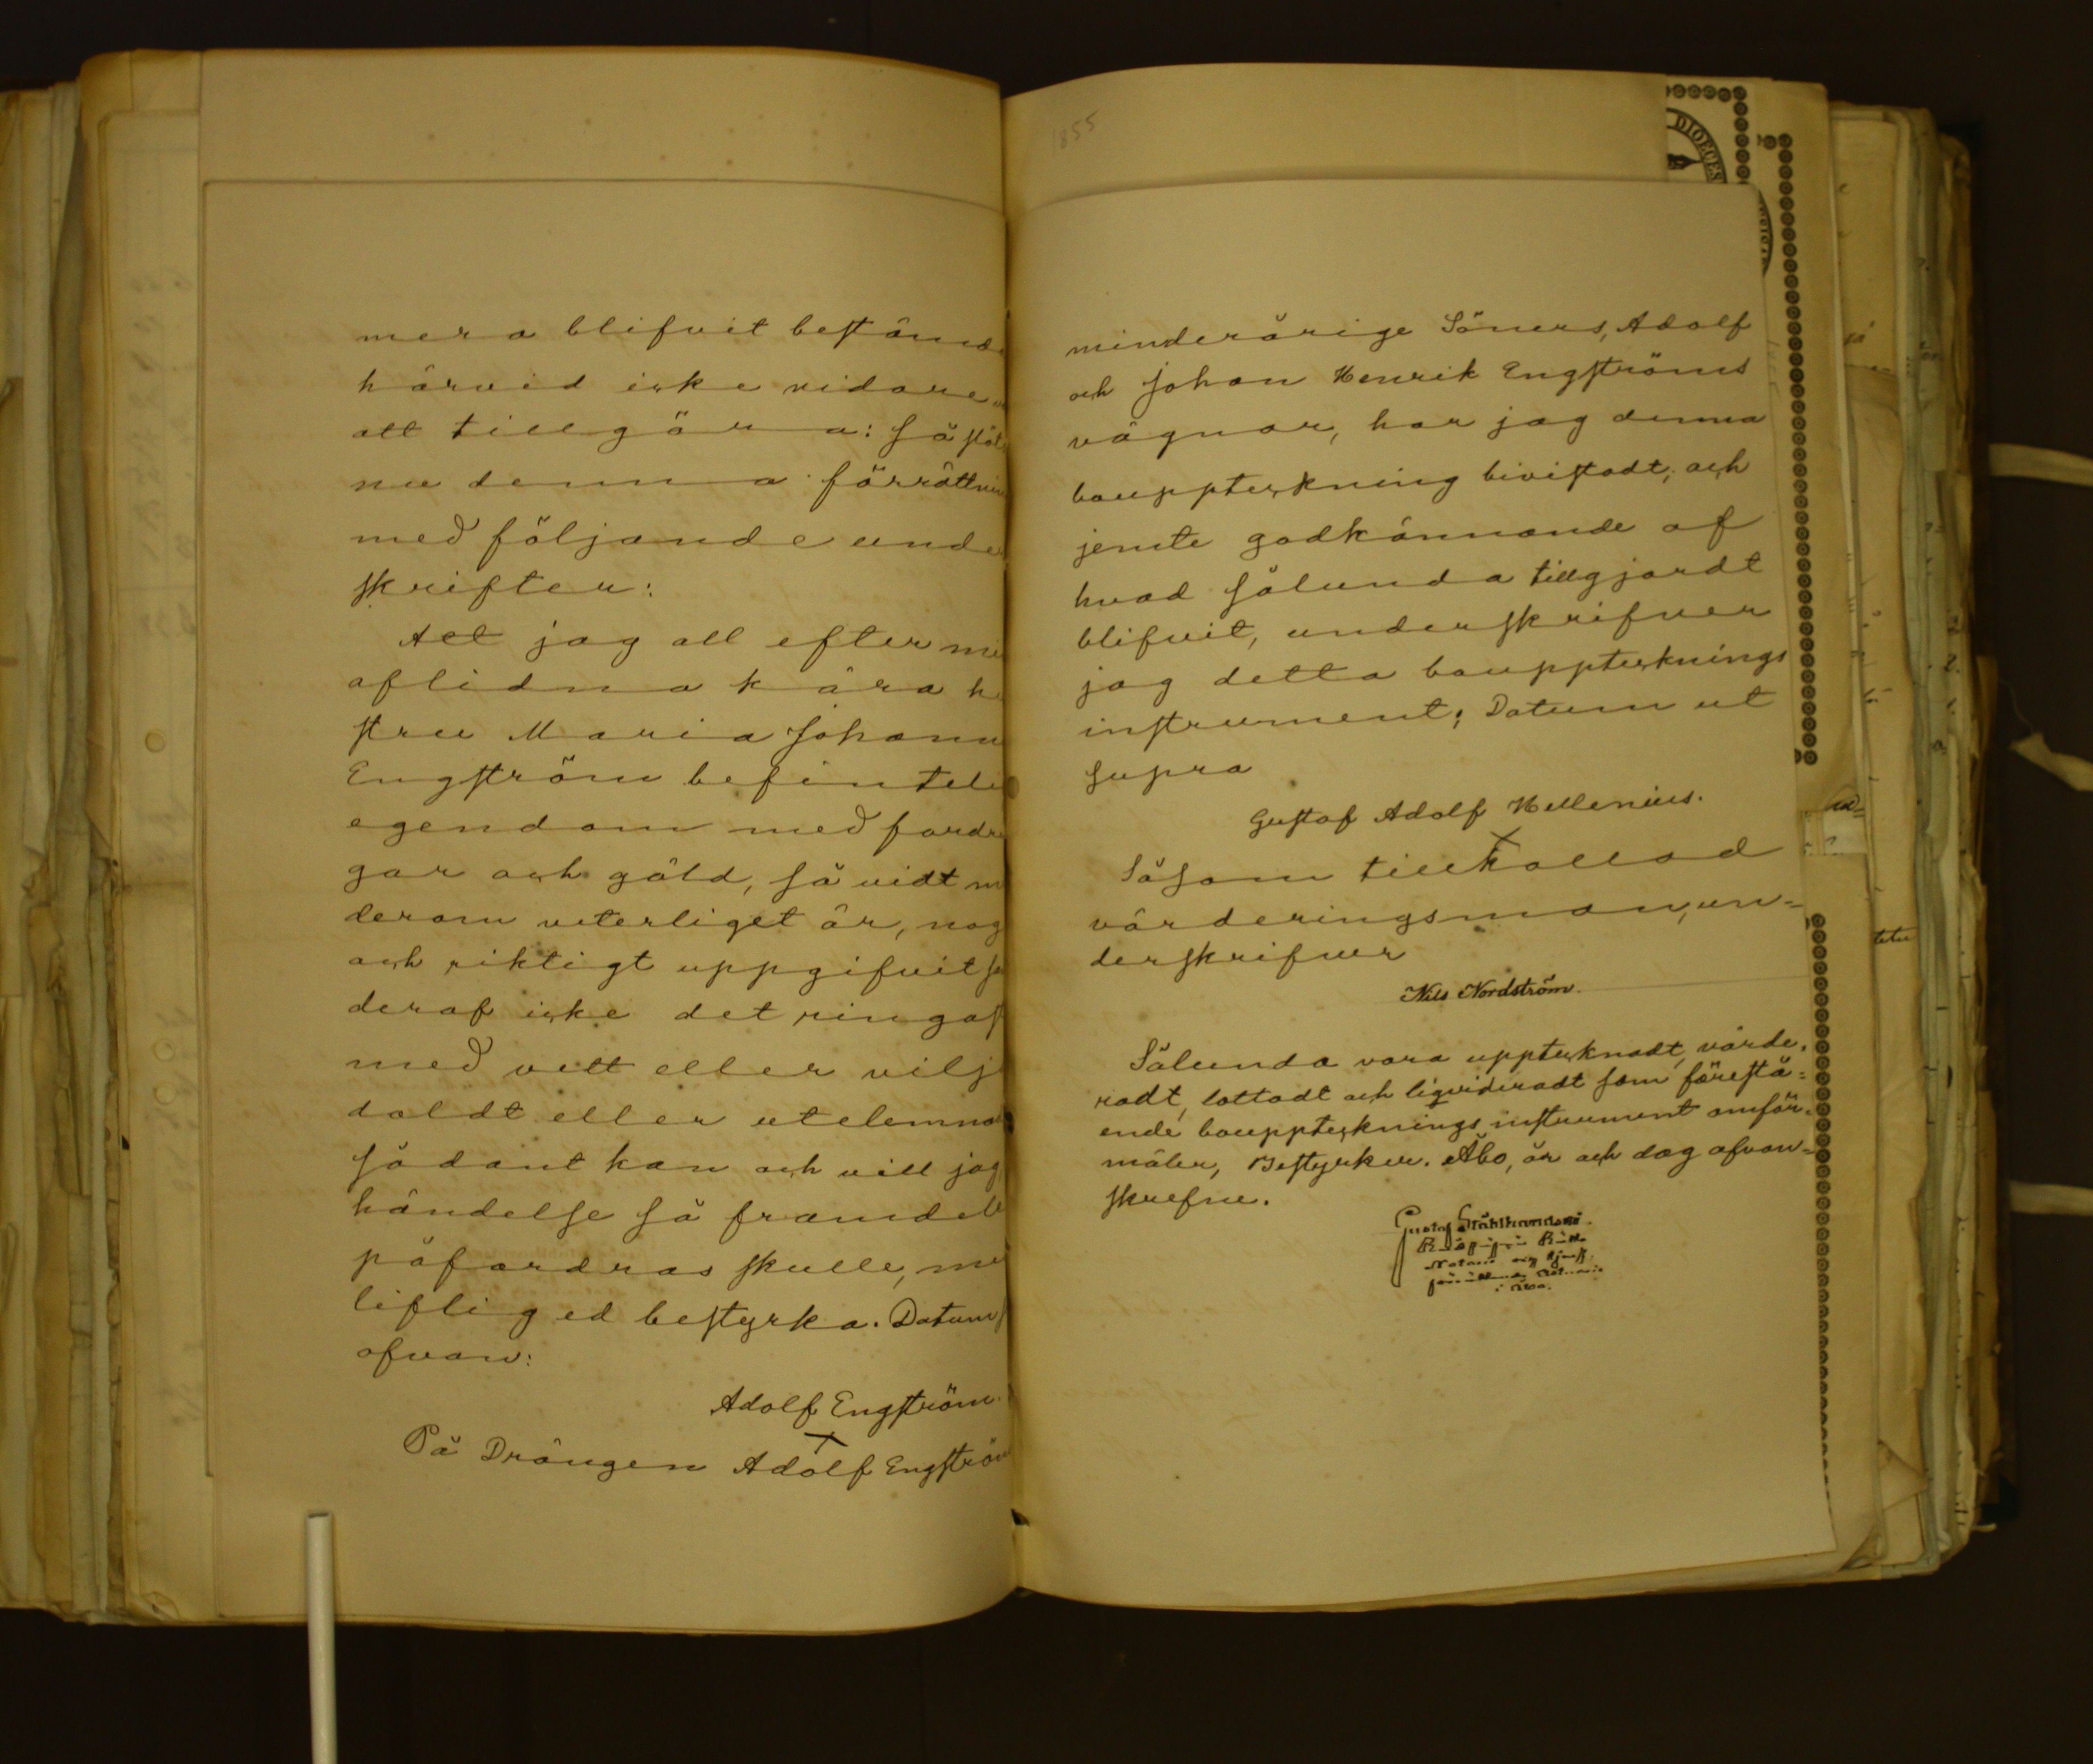 mera blifvit beständ
härvid icke vidare
att tillgöra: Så slöt
nu denna förrättnin
med följande under
skrifter:
Att jag all efter mi
aflidna kära h
stru Maria Johann
Engström befinteli
egendom med fordr
gar och gäld, så vidt m
derom veterligt är, nog
och riktigt uppgifvit
deraf icke det ringas
med vett eller vilj
doldt eller utelemna
sådant kan och vill jag
händelse så framdel
påfordras skulle, me
liflig ed bestyrka. Datum
ofvan:
Adolf Engström
På Drängen Adolf Engström
1855
minderårige Söners, Adolf
och Johan Henrik Engströms
vägnar, har jag denna
bouppteckning bivistadt, och
jemte godkännande af
hvad sålunda tillgjordt
blifvit, underskrifver
jag detta bouppteknings
instrument; Datum ut
supra
Gustaf Adolf Hellenius.
Såsom tillkallad
värderingsman, un-
derskrifver
Nils Nordström.
Sålunda vara uppteknadt, värde-
radt, lottadt och liqvideradt som förestå-
ende bouppteknings instrument omför-
mäler, Bestyrker. Åbo, år och dag ofvan-
skrefne.
Gustaf Stålhandske
i Åbo.
DIOECES